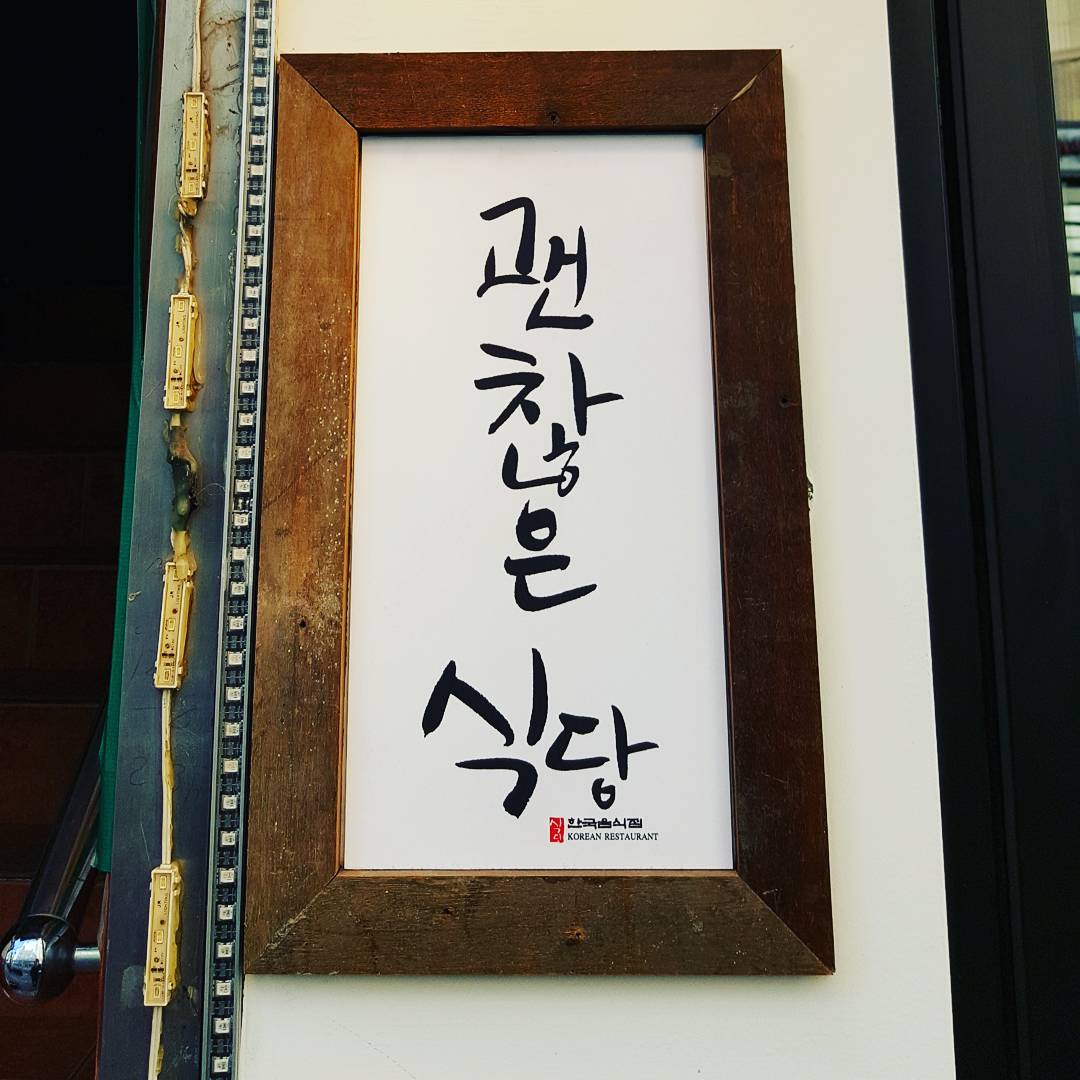 괜
찮
은
식당
식당
한국음식점
KOREAN RESTAURANT